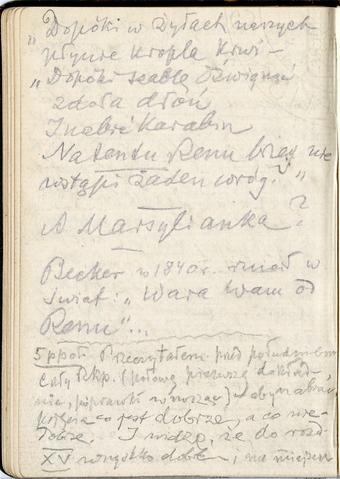 „Dopóki w żyłach naszych
płynie kropla krwi –
„Dopóki szablę dźwignąć
zdoła dłoń
I nabić karabin
Na tentu Renu brzeg nie
wstąpi żaden wróg."
A Marsylianka?
Becker w 1840 r. rzucił w
świat: „Wara wam od
Renu"...
5 ppoł. Przeczytałem przed południem
cały Rkp. (połowę pierwszą dokład-
nie, poprawki wnosząc)
co jest dobrze, a co nie-
dobrze. I widzę, że do rozd.
XV wszystko dobre, na miejscu